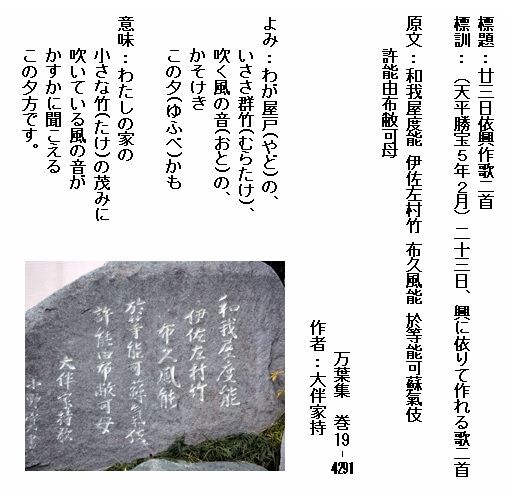 標題：廿三日依興作歌二首
標訓：（天平勝宝５年２月）二十三日、興に依りて作れる歌二首
原文：和我屋度能 伊佐左村竹 布久風能 於等能可蘇氣伎
許能由布敝可母
よみ：わが屋戸(やど)の、
いささ群竹(むらたけ)、
吹く風の音(おと)の、
かそけき
この夕(ゆふべ)かも
意味：わたしの家の
小さな竹(たけ)の茂みに
吹いている風の音が
かすかに聞こえる
この夕方です。
万葉集 巻19－4291
作者：大伴家持
和我屋度能
伊佐左村竹
布久風能
於等能可蘇氣伎
許能由布敝可母
大伴家持歌